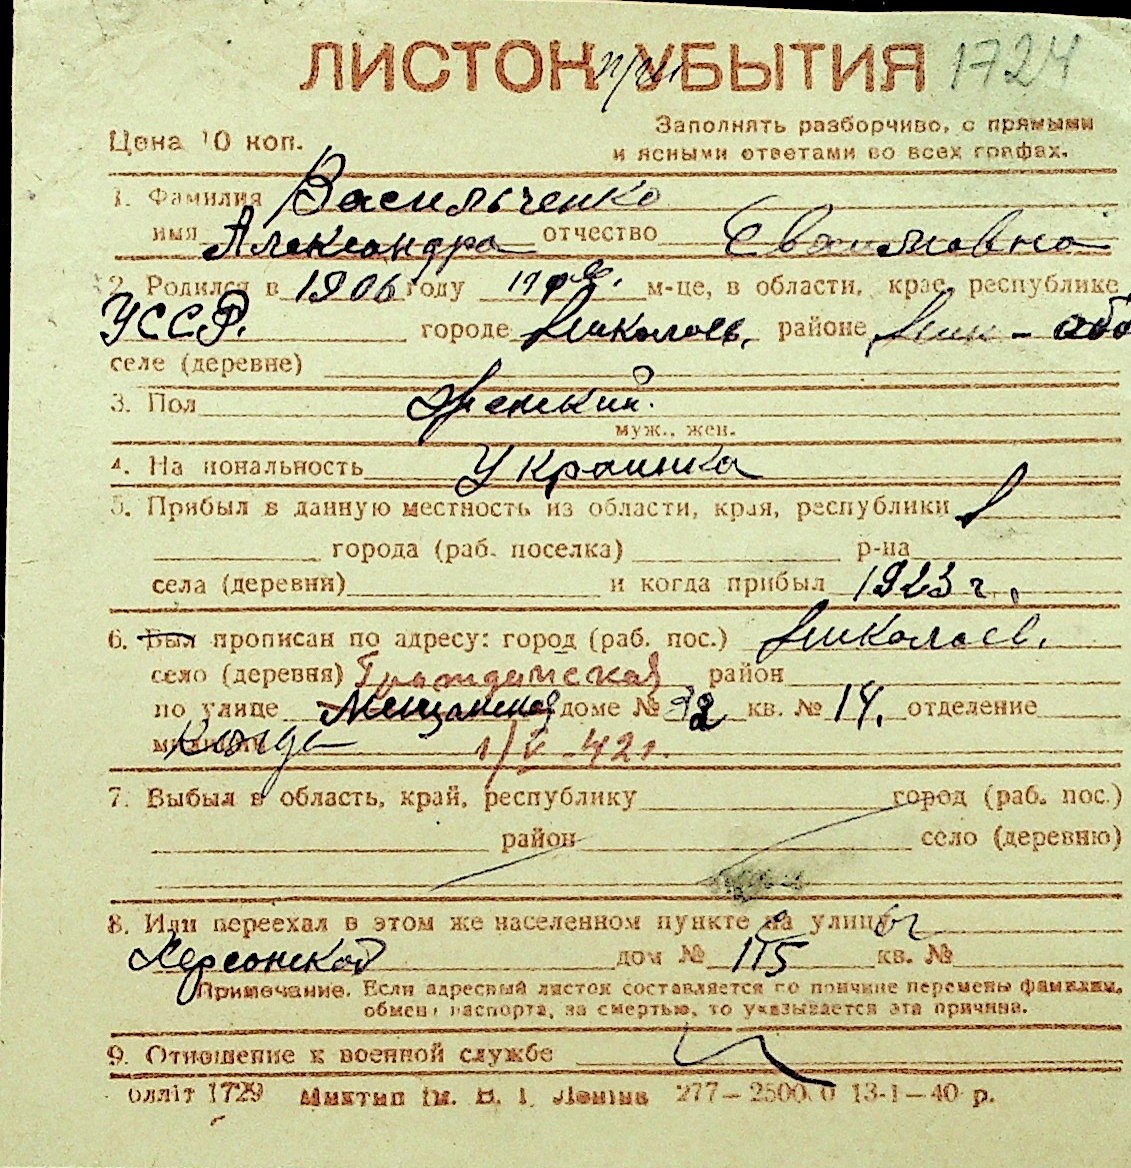 ЛИСТОК при УБЫТИЯ 1724
Цена 10 коп.
Заполнять разборчиво, с прямыми
и ясными ответами во всех графах.
1. Фамилия Васильченко
имя Александра отчество
2. Родился в 1906 году м-це, в области, крае, республике
УССР. городе Николаев. районе Ник-обл
селе (деревне)
3. Пол Женский.
муж., жен.
4. На иональность Украинка
5. Прибыл в данную местность из области, края, республики
города (раб. поселка) р-на
села (деревни) и когда прибыл 1923 г.
6. Был прописан по адресу: город (раб. пос.) Николаев.
село (деревня) Гражданская район
по улице Мещанская доме № 32 кв. № 14. отделение
милиции Когда 1/V-42г.
7. Выбыл в область, край, республику город (раб. пос.)
район село (деревню)
8. Или переехал в этом же населенном пункте на улицу
Херсонской дом № 115 кв. №
Примечание. Если адресный листок составляется по причине перемены фамилии,
обмена паспорта, за смертью, то указывается эта причина.
9. Отношение к военной службе
олліт 1729 Миктип ім. В. І. Леніна 277—2500.0 13-1—40 р.